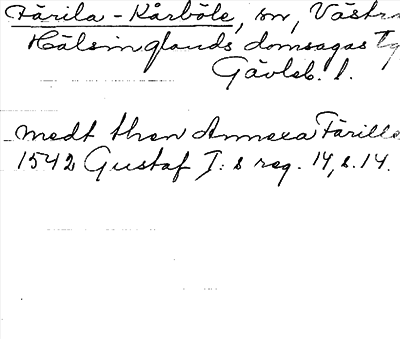 Färila-Kårböle, sn, Västra
Hälsinglands domsagas tg
Gävleb. l.
medt then Annexa Färilla
1542 Gustaf I:s reg. 14, s. 14.